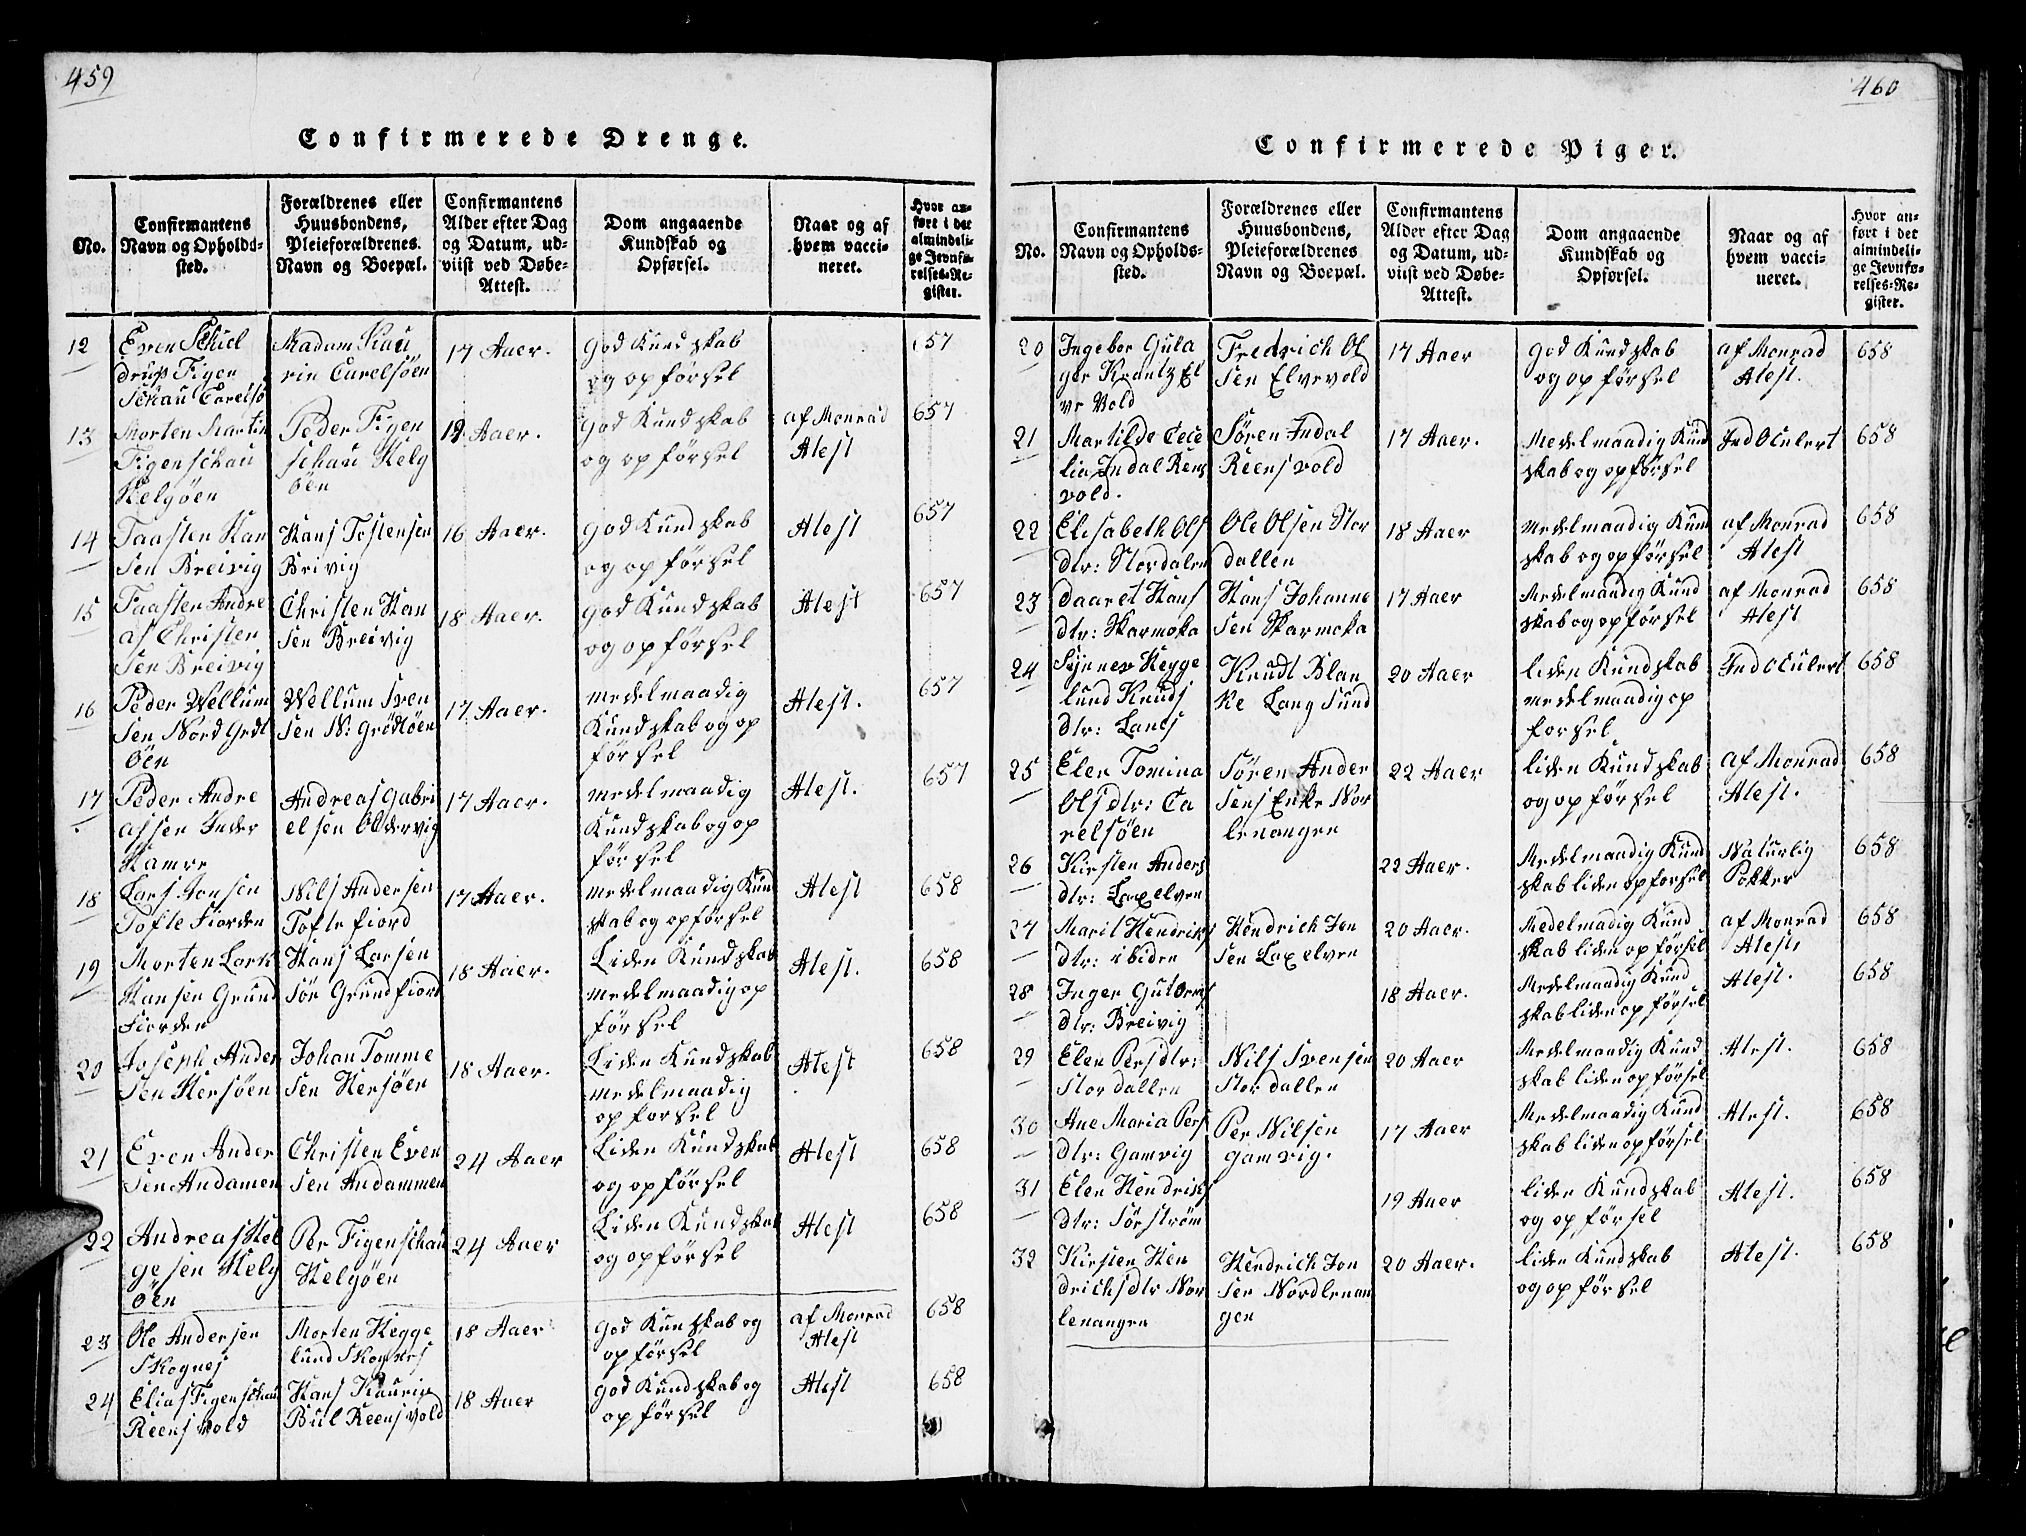 459
Confirmerede Drenge.
No.
Confirmantens
Navn og Opholds-
sted.
Forældrenes eller
Huusbondens,
Pleieforældrenes
Navn og Boepæl.
Confirmantens
Alder efter Dag
og Datum, ud-
viist ved Døbe-
Attest.
Dom angaaende
Kundskab og
Opførsel.
Naar og af
hvem vacci-
neret.
Hvor an-
ført i det
almindeli-
ge Jevnfø-
relses-Re-
gister.
12
Even Schiel
drup Figen
Schau Carelsö
Madam Kau
rin Carelsöen
17 Aaer.
God Kundskab
og opførsel
657
13
Morten Martin
Figenschau
Helgöen
Peder Figen
schau Helg
öen
19 Aaer.
God Kundskab
og opförsel
af Monrad
Atest
657
14
Taasten Han
sen Breivig
Hans Tostensen
Brivig
16 Aaer.
God Kundskab
og opförsel
Atest
657
15
Taasten Andre
as Christen
sen Breivig
Christen Han
sen Breivig
18 Aaer.
God Kundskab
og opförsel
Atest
657
16
Peder Wellum
sen Nord Grdt
öen
Wellum Sven
sen N: Grödtöen
17 Aaer.
medelmaadig
Kundskab og op
försel
Atest.
657
17
Peder Andre
assen Inder
Hamre
Andreas Gabri
elsen Oldervig
17 Aaer.
medelmaadig
Kundskab og op
försel
Atest.
657
18
Lars Jonsen
Tofte Fiorden
Nils Andersen
Tofte fiord
17 Aaer.
medelmaadig Kun
skab og opförsel
Atest
658
19
Morten Lork
Hansen Grund
Fiorden
Hans Larsen
Sör Grundfiord
18 Aaer.
Liden Kundskab
medelmaadig op
försel
Atest.
658
20
Joseph Ander
sen Hersöen
Johan Tomme
sen Hersöen
18 Aaer.
Liden Kundskab
medelmaadig
opforsel
Atest
658
21
Even Ander
sen Andamen
Christen Even
sen Andammen
24 Aaer
Liden Kundskab
og opförsel
Atest
658
22
Andreas Hel
gesen Helg
öen
Per Figenschau
Helgöen
24 Aaer
Liden Kundskab
og opförsel
Atest
658
23
Ole Andersen
Skognes
Morten Hegge
lund Skognes
18 Aaer
God Kunskab og
opförsel
af Monrad
Atest
658
24
Elias Figenschau
Reensvold
Hans Kaurin
Bul Reensvold
18 Aaer
God Kundskab og
opförsel
Atest
658
460
Confirmerede Piger.
No.
Confirmantens
Navn og Opholds-
sted.
Forældrenes eller
Huusbondens,
Pleieforældrenes
Navn og Boepæl.
Confirmantens
Alder efter Dag
og Datum, ud-
viist ved Døbe-
Attest.
Dom angaaende
Kundskab og
Opførsel.
Naar og af
hvem vacci-
neret.
Hvor an-
ført i det
almindeli-
ge Jevnfø-
relses-Re-
gister.
20
Ingebor Gula
ger Krantz El
ve Vold
Fredrich Ol
sen Elvevold
17 Aaer
God Kundskab
og opförsel
af Monrad
Atest.
658
21
Martilde Cece
lia Indal Rens
vold.
Søren Indal
Reensvold
17 Aaer.
Medelmaadig Kund
skab og opförsel
Ind Oculert
658
22
Elisabeth Ols
dtr: Stordalen
Ole Olsen Stor
dallen
18 Aaer
Medelmaadig Kun
skab og opförsel
af Monrad
Atest
658
23
Daaret Hans
dtr: Skarmoka
Hans Johanne
sen Skarmoka
17 Aaer
Medelmaadig Kund
skab og opförsel
af Monrad
Atest
658
24
Synnev Hegge
lund Knuds
dtr: Lancs
Knudt Blan
ke Lang Sund
20 Aaer
liden Kundskab
medelmaadig op
forsel
Ind Oculert
658
25
Elen Tomina
Olsdtr: Ca
relsöen
Søren Ander
sens Enke Nor
lenangen
22 Aaer
liden Kundskab
og opförsel
af Monrad
Atest.
658
26
Kirsten Anders
dtr: Laxelven
22 Aaer.
Medelmaadig Kund
skab liden opforsel
Naturlig
Pokker
658
27
Marit Hendriks
dtr: ibiden
Hendrich Jon
sen Laxelven
20 Aaer.
Medelmadig Kund
skab liden opförsel
af Monrad
Atest
658
28
Inger Gutorms
dtr: Breivig
18 Aaer.
Medelmaadig Kund
skab liden opförsel
Atest.
658
29
Elen Persdtr:
Stordallen
Nils Svensen
Stordallen
20 Aaer
Medelmaadig Kund
skab liden opförsel
Atest.
658
30
Ane Maria Pers
dtr: Gamvig
Per Nilsen
Gamvig.
17 Aaer
Medelmaadig Kund
skab liden opförsel
Atest.
658
31
Elen Hendriks
dtr: Sörström
19 Aaer
liden Kundskab
og opförsel
Atest.
658
32
Kirsten Hen
drichsdtr Nor
lenangen
Hendrich Jon
sen Nordlenan
gen
20 Aaer.
liden Kundskab
og opförsel
Atest.
658